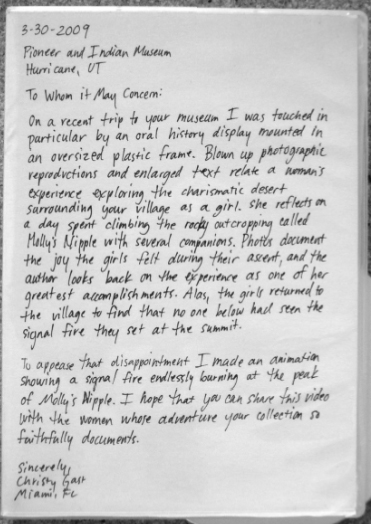 3-30-2009
Pioneer and Indian Museum
Hurricane, UT
To Whom it May Concern:
On a recent trip to your museum I was touched in
particular by an oral history display mounted in
an oversized plastic frame. Blown up photographic
reproductions and enlarged text relate a woman's
experience exploring the charismatic desert
surrounding your village as a girl. She reflects on
a day spent climbing the rocky outcropping called
Molly's Nipple with several companions. Photos document
the joy the girls felt during their ascent, and the
author looks back on the experience as one of her
greatest accomplishments. Alas, the girls returned to
the village to find that no one below had seen the
signal fire they set at the summit.
To appease that disappointment I made an animation
showing a signal fire endlessly burning at the peak
of Molly's Nipple. I hope that you can share this video
with the women whose adventure your collection so
faithfully documents.
Sincerely,
Christy Gast
Miami, FL